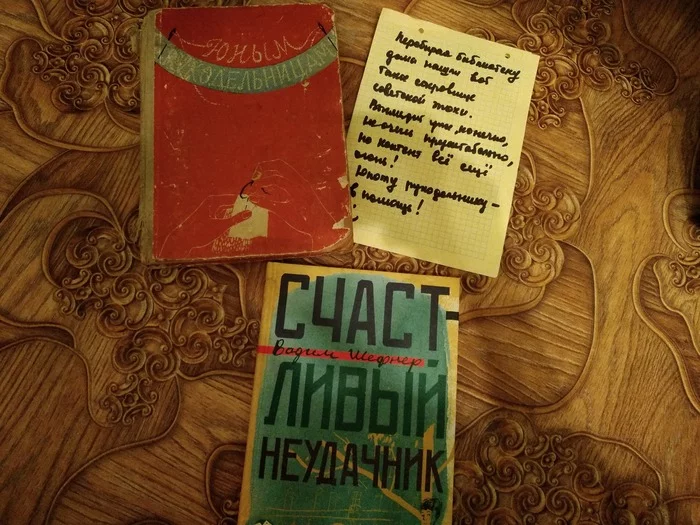 ЮНЫМ
РУКОДЕЛЬНИЦАМ
Перебирая библиотеку
дома нашли вот
такое сокровище
советской эпохи.
Выглядит уже, конечно,
не очень презентабельно,
но контент всё ещё
огонь!
Юному рукодельнику –
в помощь!
СЧАСТ-
Вадим Шефнер
ЛИВЫЙ
НЕУДАЧНИК